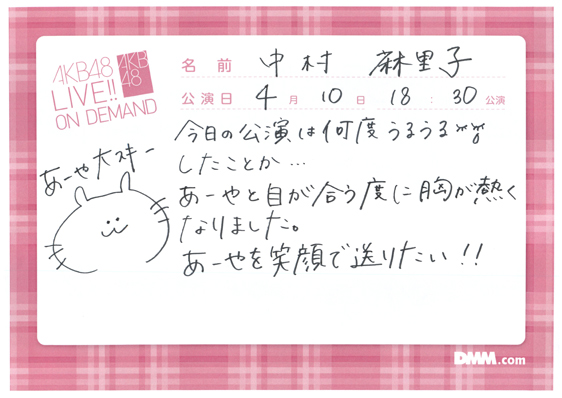 AKB48
LIVE!!
ON DEMAND
AKB
48
名前 中村 麻里子
公演日 4月 10日 18:30公演
今日の公演は何度うるうる
したことか…
あーやと目が合う度に胸が熱く
なりました。
あーやを笑顔で送りたい!!
あーや大スキー
DMM.com